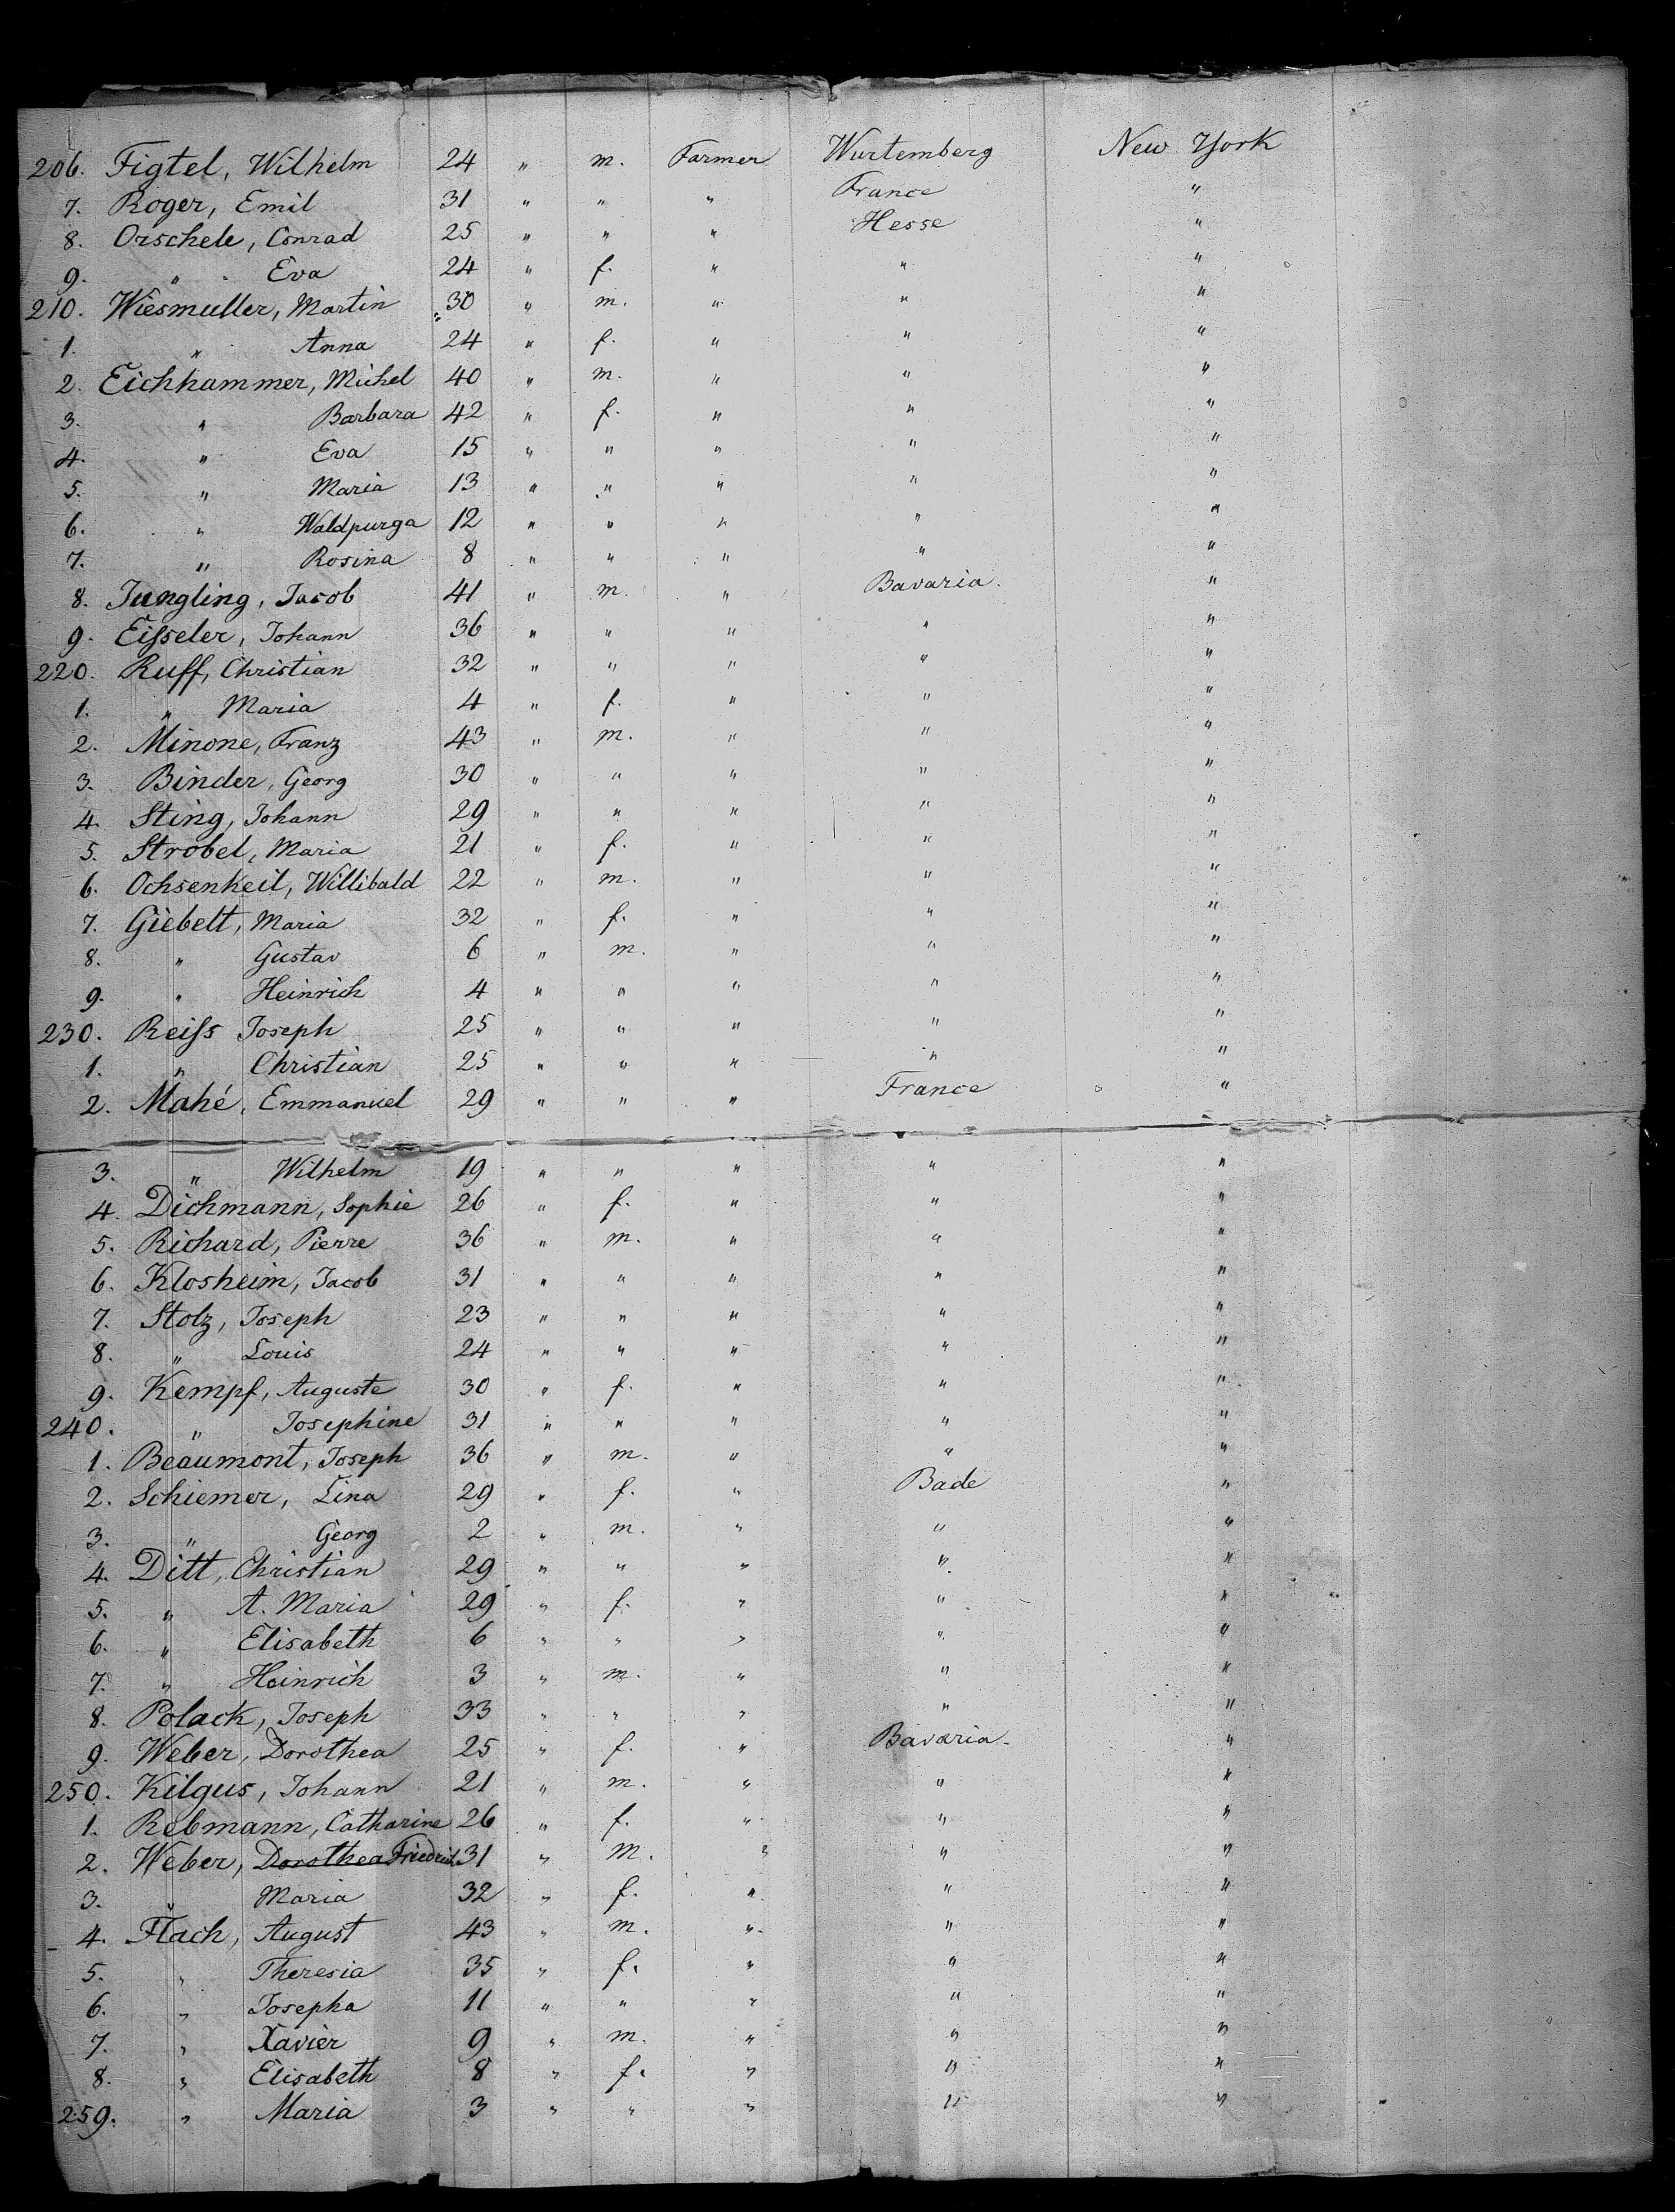 206. Figtel, Wilhelm 24 " m. Farmer Wurtemberg New York
7. Roger, Emil 31 " " " France "
8. Orschele, Conrad 25 " " " Hesse "
9. " Eva 24 " f. " " "
210. Wiesmuller, Martin 30 " m. " " "
1. " Anna 24 " f. " " "
2. Eichhammer, Michel 40 " m. " " "
3. " Barbara 42 " f. " " "
4. " Eva 15 " " " " "
5. " Maria 13 " " " " "
6. " Waldpurga 12 " " " " "
7. " Rosina 8 " " " " "
8. Jungling, Jacob 41 " m. " Bavaria. "
9. Eisseler, Johann 36 " " " " "
220. Ruff, Christian 32 " " " " "
1. " Maria 4 " f. " " "
2. Minone, Franz 43 " m. " " "
3. Binder, Georg 30 " " " " "
4. Sting, Johann 29 " " " " "
5. Strobel, Maria 21 " f. " " "
6. Ochsenkeil, Willibald 22 " m. " " "
7. Giebelt, Maria 32 " f. " " "
8. " Gustav 6 " m. " " "
9. " Heinrich 4 " " " " "
230. Reiss Joseph 25 " " " " "
1. " Christian 25 " " " " "
2. Mahé, Emmanuel 29 " " " France "
3. " Wilhelm 19 " " " " "
4. Dichmann, Sophie 26 " f. " " "
5. Richard, Pierre 36 " m. " " "
6. Klosheim, Jacob 31 " " " " "
7. Stolz, Joseph 23 " " " " "
8. " Louis 24 " " " " "
9. Kempf, Auguste 30 " f. " " "
240. " Josephine 31 " " " " "
1. Beaumont, Joseph 36 " m. " " "
2. Schiemer, Lina 29 " f. " Bade "
3. " Georg 2 " m. " " "
4. Ditt, Christian 29 " " " " "
5. " A. Maria 29 " f. " " "
6. " Elisabeth 6 " " " " "
7. " Heinrich 3 " m. " " "
8. Polack, Joseph 33 " " " " "
9. Weber, Dorothea 25 " f. " Bavaria. "
250. Kilgus, Johann 21 " m. " " "
1. Rebmann, Catharine 26 " f. " " "
2. Weber, Dorothea Friedrich 31 " m. " " "
3. " Maria 32 " f. " " "
4. Flach, August 43 " m. " " "
5. " Theresia 35 " f. " " "
6. " Josepha 11 " " " " "
7. " Xavier 9 " m. " " "
8. " Elisabeth 8 " f. " " "
259. " Maria 3 " " " " "